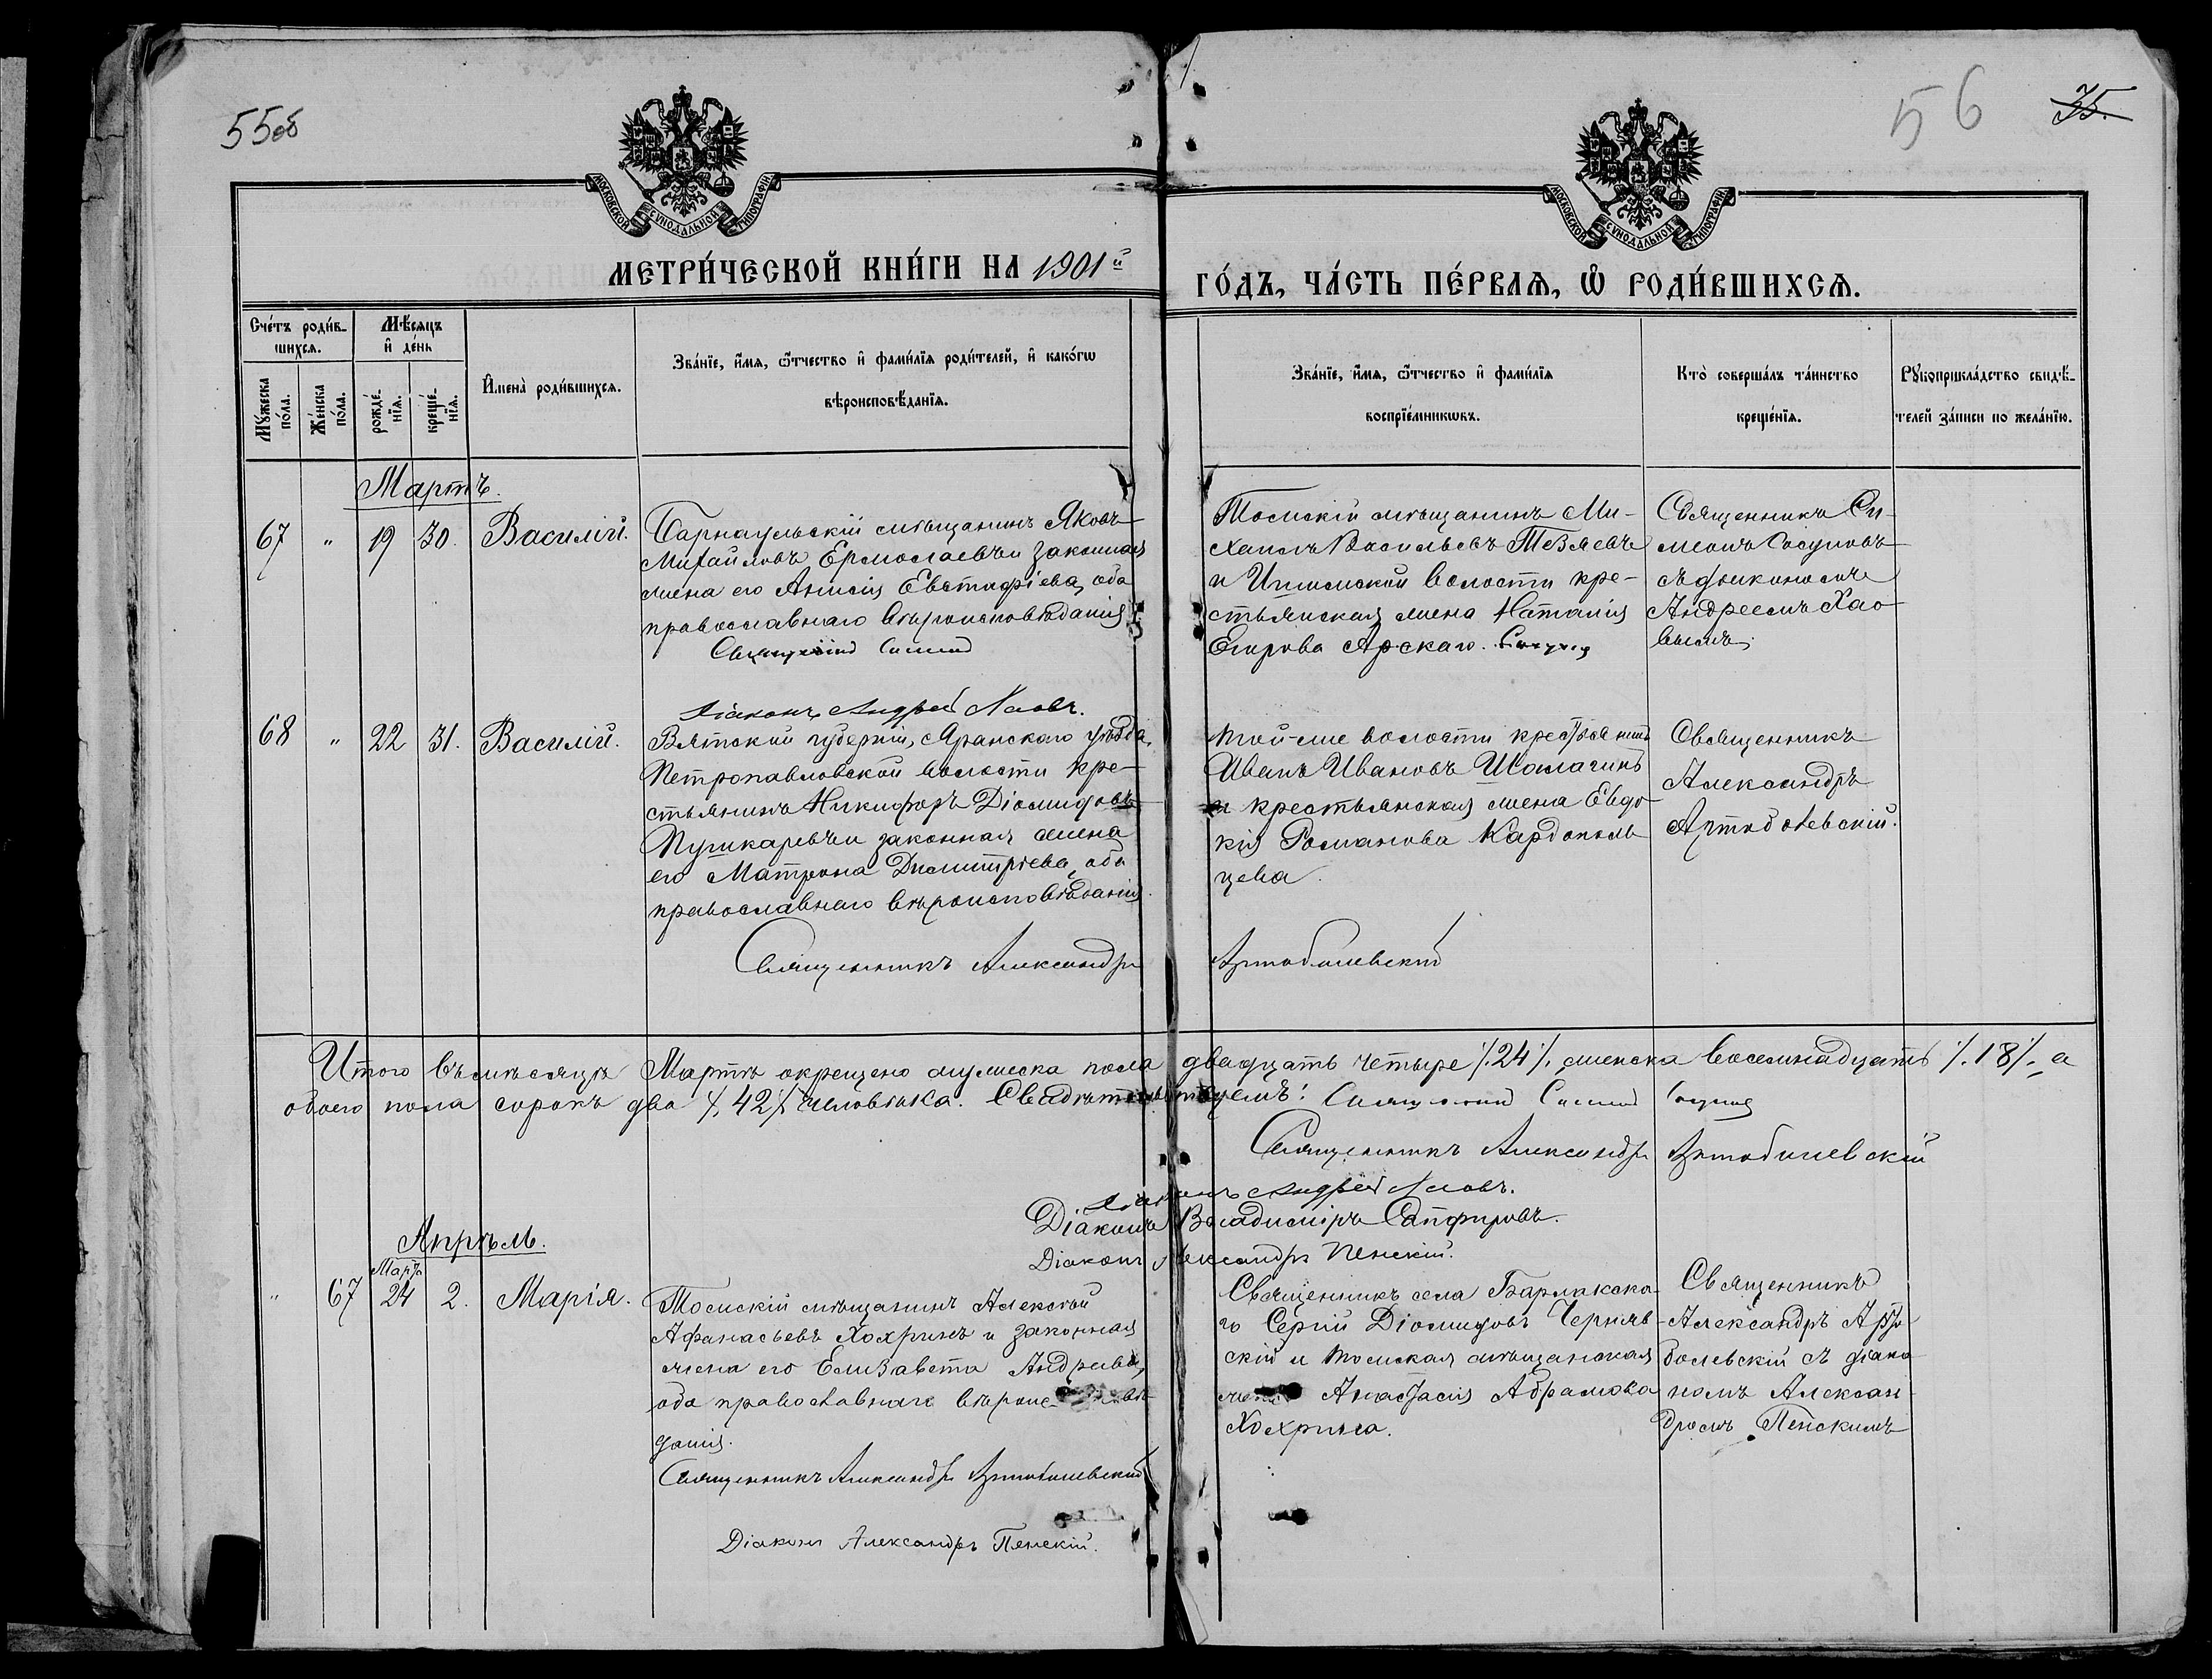 55об
56
75.
МОСКОВСКОЙ СѴНОДАЛЬНОЙ ТИПОГРАФІИ
МОСКОВСКОЙ СѴНОДАЛЬНОЙ ТИПОГРАФІИ
МЕТРИ́ЧЕСКОЙ КНИ́ГИ НА 1901й
ГО́ДЪ, ЧА́СТЬ ПЕ́РВАѦ, Ѽ РОДИ́ВШИХСѦ.
Сче́тъ роди́в-
шихсѧ.
Мѣ́сѧцъ
и҆ де́нь
Мꙋ́жеска по́ла.
Же́нска по́ла.
рожде́-нїѧ.
креще́-нїѧ.
И҆мена̀ роди́вшихсѧ.
Зва́нїе, и҆́мѧ, ѻ҆́тчество и҆ фами́лїѧ роди́телей, и҆ како́гѡ
вѣроисповѣ́данїѧ.
Зва́нїе, и҆́мѧ, ѻ҆́тчество и҆ фами́лїѧ
воспрїе́мникѡвъ.
Кто̀ соверша́лъ та́инство
креще́нїѧ.
Рꙋкоприкла́дство свидѣ́-
телей за́писи по жела́нїю.
Мартъ.
67 " 19 30. Василій.
Барнаульскій мѣщанинъ Яковъ
Михайловъ Ермолаевъ и законная
жена его Анисія Евстафіева, оба
православнаго вѣроисповѣданія
Священникъ Симеонъ
Діаконъ Андрей Хаовъ.
Томскій мѣщанинъ Ми-
хаилъ Васильевъ Тезяевъ
и Ишимской волости кре-
стьянская жена Наталія
Егирова Арскаго. Сосуновъ
Священникъ Си-
меонъ Сосуновъ
съ діакономъ
Андреемъ Хао-
вымъ
68 " 22 31. Василій.
Вятской губерніи, Яранскаго уѣзда,
Петропавловской волости кре-
стьянинъ Никифоръ Діомидовъ
Пушкаревъ и законная жена
его Матрона Димитріева, оба
православнаго вѣроисповѣданія.
Священникъ Александръ Артоболевскій
той-же волости крестьянинъ
Иванъ Ивановъ Шалагинъ
и крестьянская жена Евдо-
кія Романова Кардополь-
цева.
Священникъ
Александръ
Артоболевскій.
Итого въ мѣсяцѣ Мартѣ окрещено мужеска пола двадцать четыре /.24/. женска восемнадцать /.18/., а
обоего пола сорокъ два /.42/. человѣка. Свидѣтельствуемъ: Священникъ Симеонъ Сосуновъ
Священникъ Александръ Артоболевскій
Діаконъ Андрей Хаовъ.
Діаконъ Владиміръ Сапфировъ.
Діаконъ Александръ Пенскій.
Апрѣль.
Марта
" 67 24 2. Марія.
Томскій мѣщанинъ Алексѣй
Афанасьевъ Хохринъ и законная
жена его Елизавета Андреева,
оба православнаго вѣроисповѣ-
данія.
Священникъ Александръ Артоболевскій
Діаконъ Александръ Пенскій.
Священникъ села Барлакска-
го Сергій Діомидовъ Черняв-
скій и томская мѣщанская
жена Анастасія Абрамова
Хохрина.
Священникъ
Александръ Арто-
болевскій съ діако-
номъ Алексан-
дромъ Пенскимъ